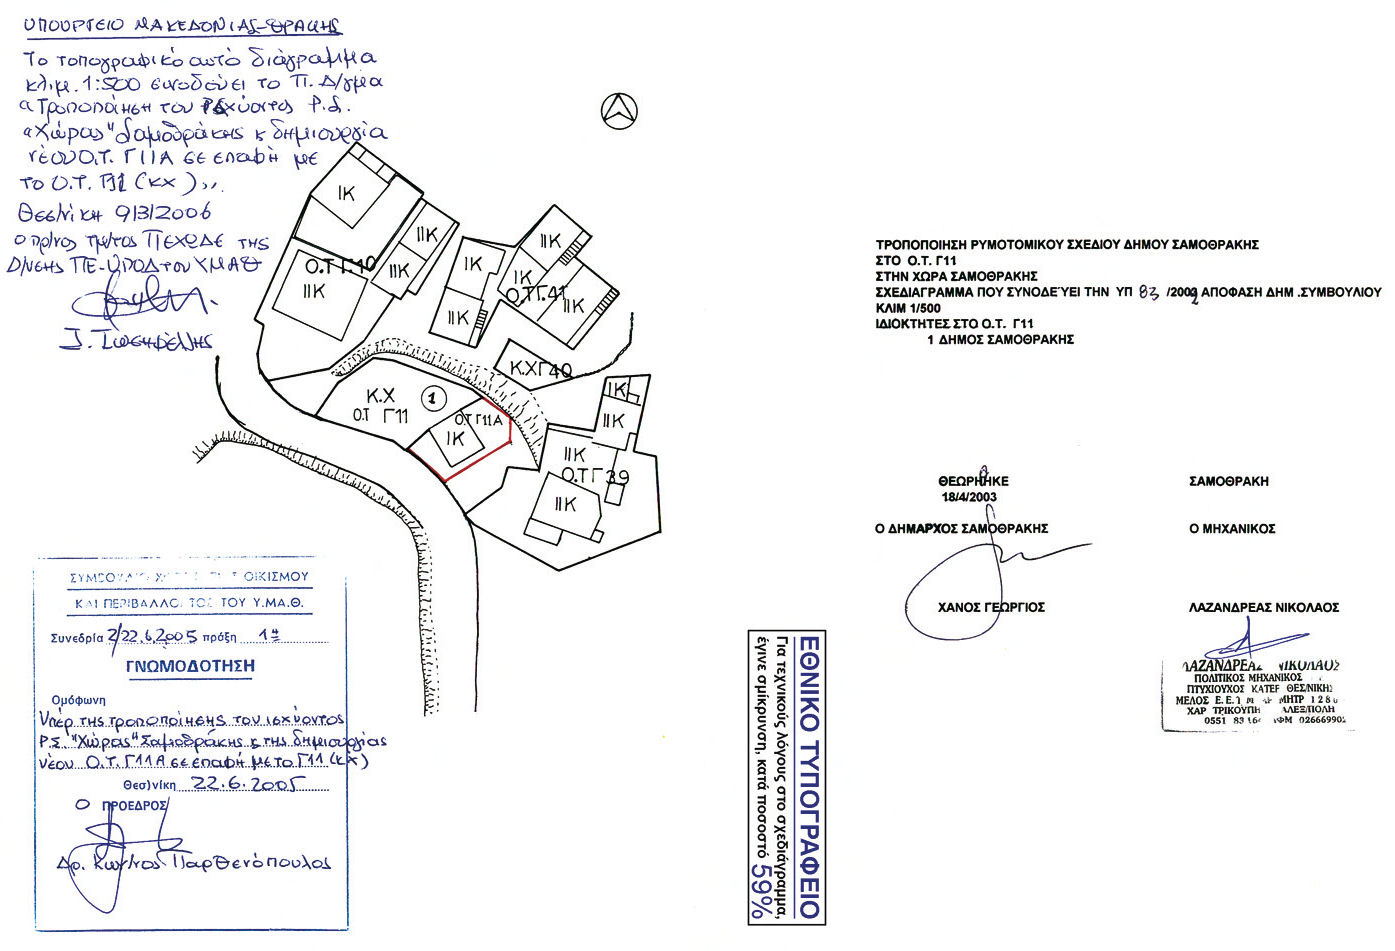 ΥΠΟΥΡΓΕΙΟ ΜΑΚΕΔΟΝΙΑΣ-ΘΡΑΚΗΣ
Το τοπογραφικό αυτό διάγραμμα
κλιμ. 1:500 συνοδεύει το Π. Δ/γμα
«Τροποποίηση του ισχύοντος Ρ.Σ.
"Χώρας" Σαμοθράκης & δημιουργία
νέου Ο.Τ. Γ11Α σε επαφή με
το Ο.Τ. Γ11 (ΚΧ)».
Θεσ/νίκη 9/3/2006
Ο πρ/νος τμ/τος ΠΕΧΩΔΕ της
Δ/νσης ΠΕ-ΧΩΠΟΔ του ΥΜΑΘ
Ι. Ιωσηφέλλης
ΙΚ
ΙΙΚ
ΙΙΚ
Ο.Τ Γ.10
ΙΙΚ
ΙΚ
ΙΙΚ
ΙΙΚ
Ο.Τ Γ.41
ΙΙΚ
Κ.Χ Γ40
Κ.Χ
Ο.Τ Γ11
1
Ο.Τ Γ11Α
ΙΚ
ΙΚ
ΙΙΚ
ΙΙΚ
Ο.Τ Γ 39
ΙΙΚ
ΤΡΟΠΟΠΟΙΗΣΗ ΡΥΜΟΤΟΜΙΚΟΥ ΣΧΕΔΙΟΥ ΔΗΜΟΥ ΣΑΜΟΘΡΑΚΗΣ
ΣΤΟ Ο.Τ. Γ11
ΣΤΗΝ ΧΩΡΑ ΣΑΜΟΘΡΑΚΗΣ
ΣΧΕΔΙΑΓΡΑΜΜΑ ΠΟΥ ΣΥΝΟΔΕΎΕΙ ΤΗΝ ΥΠ 83 /2002 ΑΠΟΦΑΣΗ ΔΗΜ .ΣΥΜΒΟΥΛΙΟΥ
ΚΛΙΜ 1/500
ΙΔΙΟΚΤΗΤΕΣ ΣΤΟ Ο.Τ. Γ11
1 ΔΗΜΟΣ ΣΑΜΟΘΡΑΚΗΣ
ΘΕΩΡΗΘΗΚΕ
18/4/2003
ΣΑΜΟΘΡΑΚΗ
Ο ΔΗΜΑΡΧΟΣ ΣΑΜΟΘΡΑΚΗΣ
Ο ΜΗΧΑΝΙΚΟΣ
ΧΑΝΟΣ ΓΕΩΡΓΙΟΣ
ΛΑΖΑΝΔΡΕΑΣ ΝΙΚΟΛΑΟΣ
ΛΑΖΑΝΔΡΕΑΣ ΝΙΚΟΛΑΟΣ
ΠΟΛΙΤΙΚΟΣ ΜΗΧΑΝΙΚΟΣ
ΠΤΥΧΙΟΥΧΟΣ ΘΕΣ/ΝΙΚΗΣ
ΜΕΛΟΣ ΜΗΤΡ
ΧΑΡ ΤΡΙΚΟΥΠΗ
0551
ΣΥΜΒΟΥΛΙΟ ΟΙΚΙΣΜΟΥ
ΚΑΙ ΠΕΡΙΒΑΛΛΟΝΤΟΣ ΤΟΥ Υ.ΜΑ.Θ.
Συνεδρία 2/22.6.2005 πράξη 1η
ΓΝΩΜΟΔΟΤΗΣΗ
Ομόφωνη
Υπέρ της τροποποίησης του ισχύοντος
Ρ.Σ. "Χώρας" Σαμοθράκης & της δημιουργίας
νέου Ο.Τ. Γ11Α σε επαφή με το Γ11 (ΚΧ)
Θεσ)νίκη 22.6.2005
Ο ΠΡΟΕΔΡΟΣ
Δρ. Κων/νος Παρθενόπουλος
ΕΘΝΙΚΟ ΤΥΠΟΓΡΑΦΕΙΟ
Για τεχνικούς λόγους στο σχεδιάγραμμα,
έγινε σμίκρυνση, κατά ποσοστό 59%